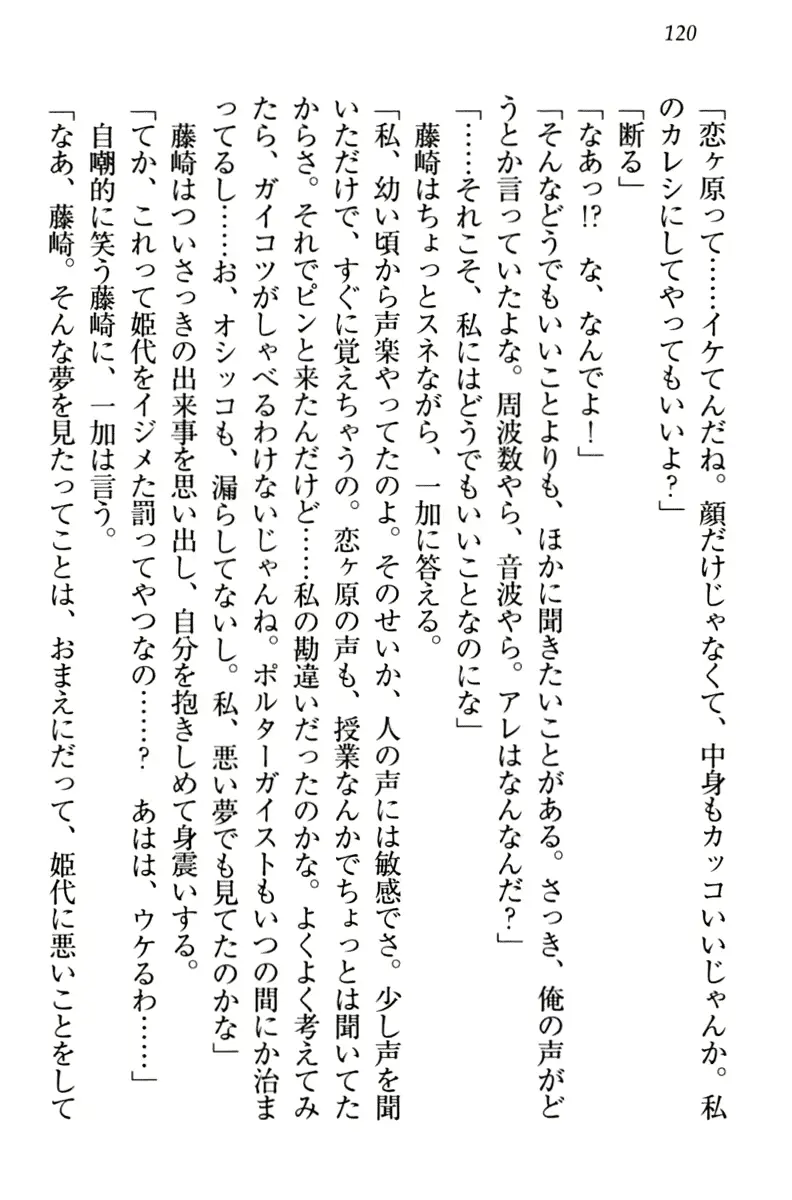 120
「恋ヶ原って……イケてんだね。顔だけじゃなくて、中身もカッコいいじゃんか。私
のカレシにしてやってもいいよ？」
「断る」
「なあっ!?　な、なんでよ！」
「そんなどうでもいいことよりも、ほかに聞きたいことがある。さっき、俺の声がど
うとか言っていたよな。周波数やら、音波やら。アレはなんなんだ？」
「……それこそ、私にはどうでもいいことなのにな」
藤崎はちょっとスネながら、一加に答える。
「私、幼い頃から声楽やってたのよ。そのせいか、人の声には敏感でさ。少し声を聞
いただけで、すぐに覚えちゃうの。恋ヶ原の声も、授業なんかでちょっとは聞いてた
からさ。それでピンと来たんだけど……私の勘違いだったのかな。よくよく考えてみ
たら、ガイコツがしゃべるわけないじゃんね。ポルターガイストもいつの間にか治ま
ってるし……お、オシッコも、漏らしてないし。私、悪い夢でも見てたのかな」
藤崎はついさっきの出来事を思い出し、自分を抱きしめて身震いする。
「てか、これって姫代をイジメた罰ってやつなの……？　あはは、ウケるわ……」
自嘲的に笑う藤崎に、一加は言う。
「なあ、藤崎。そんな夢を見たってことは、おまえにだって、姫代に悪いことをして